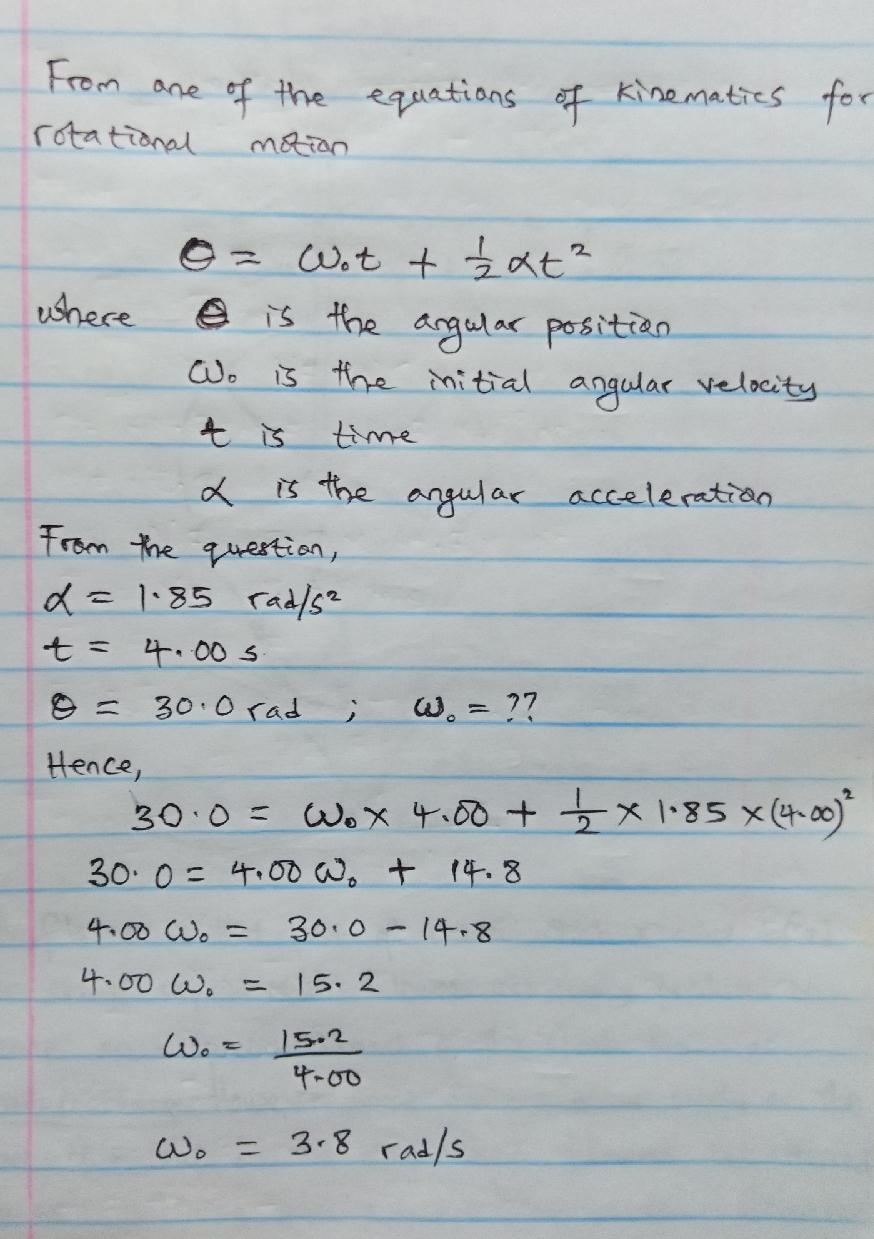 From one of the equations of kinematics for
rotational motion
θ = ω₀t + ½αt²
where θ is the angular position
ω₀ is the initial angular velocity
t is time
α is the angular acceleration
From the question,
α = 1.85 rad/s²
t = 4.00 s
θ = 30.0 rad ; ω₀ = ??
Hence,
30.0 = ω₀ × 4.00 + ½ × 1.85 × (4.00)²
30.0 = 4.00 ω₀ + 14.8
4.00 ω₀ = 30.0 - 14.8
4.00 ω₀ = 15.2
ω₀ = 15.2/4.00
ω₀ = 3.8 rad/s